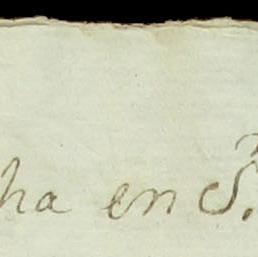 ha en S.